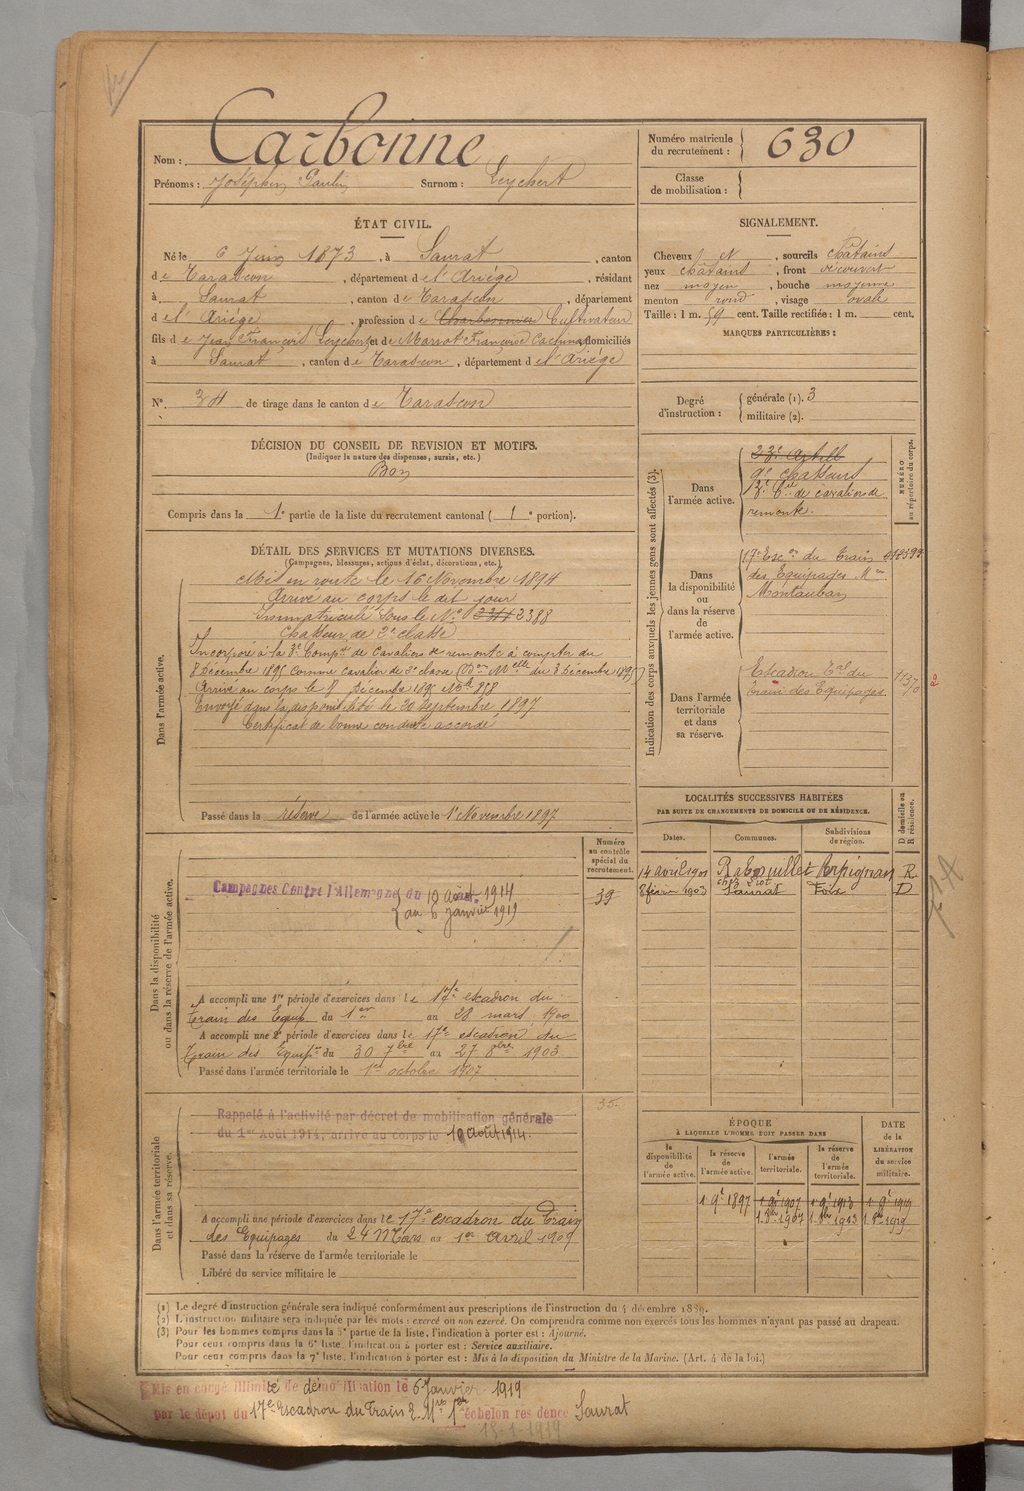 Nom : Carbonne
Prénoms : Joséphin Paulin Surnom : Leychert
Numéro matricule du recrutement : 630
Classe de mobilisation :
ÉTAT CIVIL.
Né le 6 Juin 1873, à Saurat, canton
de Tarascon, département de l'Ariége, résidant
à Saurat, canton de Tarascon, département
de l'Ariége, profession de Charbonnier Cultivateur
fils de Jean François Leychert et de Marrot Françoise domiciliés
à Saurat, canton de Tarascon, département de l'Ariége
N° 34 de tirage dans le canton de Tarascon
SIGNALEMENT.
Cheveux et, sourcils châtains
yeux châtains, front découvert
nez moyen, bouche moyenne
menton rond, visage ovale
Taille : 1 m. 59 cent. Taille rectifiée : 1 m. cent.
MARQUES PARTICULIÈRES :
Degré d'instruction : générale (1). 3
militaire (2).
DÉCISION DU CONSEIL DE REVISION ET MOTIFS.
(Indiquer la nature des dispenses, sursis, etc.)
Bon
Compris dans la 1e partie de la liste du recrutement cantonal (1e portion).
DÉTAIL DES SERVICES ET MUTATIONS DIVERSES.
(Campagnes, blessures, actions d'éclat, décorations, etc.)
Dans l'armée active.
Mis en route le 16 Novembre 1894
Arrivé au corps le dit jour
Immatriculé sous le N° 2388
Chasseur de 2e classe
Incorporé à la 3e Compie de Cavaliers de remonte à compter du
8 Décembre 1895 comme cavalier de 2e classe (Don Melle du 3 Décembre 1895)
Arrivé au corps le 9 Décembre 1895
Envoyé dans la disponibilité le 20 Septembre 1897
Certificat de bonne conduite accordé
Passé dans la réserve de l'armée active le 1er Novembre 1897
Indication des corps auxquels les jeunes gens sont affectés (3).
NUMÉRO au répertoire du corps.
Dans l'armée active.
23e Artill
9e chasseurs
de cavaliers de
remonte.
Dans la disponibilité ou dans la réserve de l'armée active.
17e Escon du train
des Equipages Mres
Montauban
Dans l'armée territoriale et dans sa réserve.
Escadron Tal du
train des Equipages
LOCALITÉS SUCCESSIVES HABITÉES
PAR SUITE DE CHANGEMENTS DE DOMICILE OU DE RÉSIDENCE.
Dates. Communes. Subdivisions de région. D domicile ou R résidence.
14 avril 1901 Rabouillet Perpignan R.
8 févr 1903 Saurat Foix D
Numéro au contrôle spécial du recrutement.
Dans la disponibilité ou dans la réserve de l'armée active.
Campagnes Contre l'Allemagne du 10 août 1914
au 6 janvier 1919
39
A accompli une 1re période d'exercices dans le 17e escadron du
Train des Equip du 1er au 28 mars 1900
A accompli une 2e période d'exercices dans le 17e escadron du
Train des Equipes du 30 7bre au 27 8bre 1903
Passé dans l'armée territoriale le 1er octobre 1907
Dans l'armée territoriale et dans sa réserve.
35.
Rappelé à l'activité par décret de mobilisation générale
du 1er Août 1914, arrivé au corps le 10 août 1914.
A accompli une période d'exercices dans le 17e escadron du Train
des Equipages du 24 Mars au 1er avril 1909
Passé dans la réserve de l'armée territoriale le
Libéré du service militaire le
ÉPOQUE
À LAQUELLE L'HOMME DOIT PASSER DANS
DATE de la LIBÉRATION du service militaire.
la disponibilité de l'armée active. la réserve de l'armée active. l'armée territoriale. la réserve de l'armée territoriale.
1 9e 1897 1 9e 1907 1 9e 1913 1 9e 1919
1. 8bre 1907 1. 8bre 1913 1 8bre 1919
(1) Le degré d'instruction générale sera indiqué conformément aux prescriptions de l'instruction du 4 décembre 1889.
(2) L'instruction militaire sera indiquée par les mots : exercé ou non exercé. On comprendra comme non exercés tous les hommes n'ayant pas passé au drapeau.
(3) Pour les hommes compris dans la 5e partie de la liste, l'indication à porter est : Ajourné.
Pour ceux compris dans la 6e liste, l'indication à porter est : Service auxiliaire.
Pour ceux compris dans la 7e liste, l'indication à porter est : Mis à la disposition du Ministre de la Marine. (Art. 4 de la loi.)
Mis en congé illimité de démobilisation le 6 Janvier 1919
par le dépôt du 17e Escadron du Train E. Mres 1er échelon résidence Saurat
18-1-1919